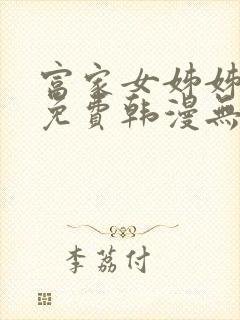 富家女姊姊
免費韩漫無
李荔付